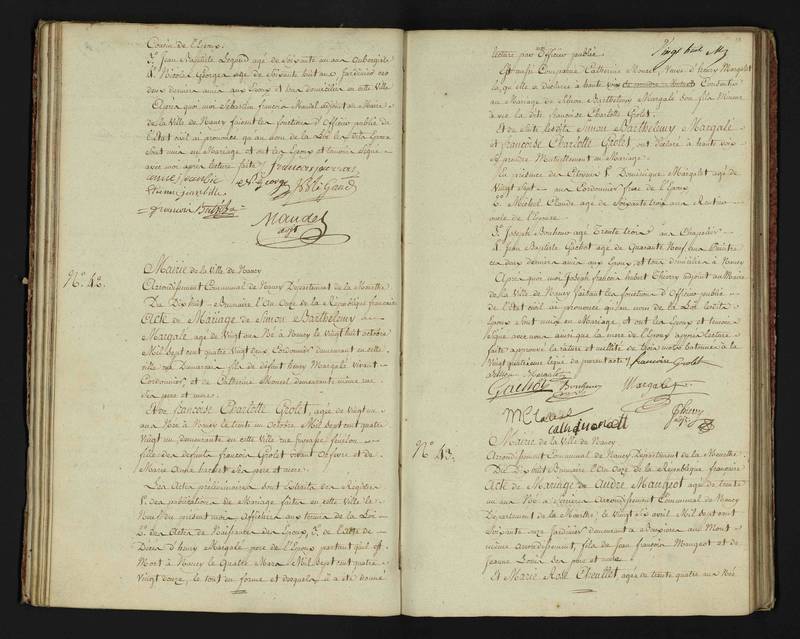 Cousin de l'Epoux.
3.º Jean Baptiste Legand agé de soixante un ans Aubergiste
4.º Nicolas George agé de soixante huit ans, Jardinier ces
deux derniers amis aux Epoux et tous domiciliés en cette Ville
Après quoi, moi Sébastien françois Mandel adjoint au Maire
de la Ville de Nancy faisant les fonctions d'Officier public de
l'état civil ai prononcé qu'au nom de la Loi les dits Epoux
sont unis en Mariage et ont les Epoux et temoins signé
avec moi après lecture faite
N. George
Mandel
adjt
Nº. 42.
Mairie de la Ville de Nancy
Arrondissement Communal de Nancy Département de la Meurthe
Du Dix huit Brumaire l'An Onze de la République française
Acte de Mariage de Simon Barthelemy
Margalé agé de Vingt ans Né à Nancy le Vingt huit octobre
Mil Sept cent quatre Vingt deux Cordonnier demeurant en cette
Ville rue fils de défunt henry Margalé Vivant
Cordonnier, et de Catherine Monsel demeurant même rue
ses pere et mere.
Et de françoise Charlotte Grolet, agée de Vingt un
ans Née à Nancy le trente un octobre Mil Sept cent quatre
Vingt un, demeurante en cette Ville rue
fille des defunts françois Grolet vivant Orfevre et de
Marie Anne ses pere et mere.
Les Actes préliminaires sont Extraits des Registres
1.º des publications de Mariage faites en cette Ville le
Neuf du présent mois Affichées aux termes de la Loi
2.º des Actes de Naissance des Epoux, 3.º de l'acte de
Décès d'henry Margalé pere de l'Epoux portant qu'il est
Mort à Nancy le Quatre Mars Mil Sept cent quatre
Vingt douze, le tout en forme et desquels il a été donné
lecture par l'Officier public
Vingt huit
Est aussi Comparue Catherine Monsel Veuve d'henry Margalet
laquelle a déclaré à haute voix Consentir
au Mariage de Simon Barthelemy Margalé son fils Mineur
avec la dite françoise Charlotte Grolet.
Et de suite lesdits Simon Barthelemy Margalé
et françoise Charlotte Grolet, ont déclaré à haute voix
se prendre Mutuellement en Mariage.
En présence de Citoyens 1.º Dominique Margalet agé de
Vingt Sept ans Cordonnier frere de l'Epoux
2.º Michel Claude agé de Soixante trois ans Rentier
oncle de l'Epouse
3.º Joseph Bonheure agé Trente trois ans Chapelier
4.º Jean Baptiste Gachot agé de Quarante Neuf ans Peintre
ces deux derniers amis aux Epoux, et tous domiciliés à Nancy
Après quoi moi Joseph françois hubert Thiery adjoint au Maire
de la Ville de Nancy faisant les fonctions d'Officier public
de l'état civil ai prononcé qu'au nom de la Loi lesdits
Epoux sont unis en Mariage et ont les Epoux et temoins
signé avec nous ainsi que la mere de l'Epoux après lecture
faite approuvé la rature et nullité de trois mots batonnés à la
Vingt quatrieme ligne du present acte
françoise Grolet
Gachot
Bonheure
Margalet
Thiery
adjt
Nº. 43.
Mairie de la Ville de Nancy
Arrondissement Communal de Nancy Département de la Meurthe
Du Dix huit Brumaire l'An Onze de la République française
Acte de Mariage de André Maugeot agé de trente
un ans Né à Arrondissement Communal de Nancy
Département de la Meurthe, le Vingt six avril Mil Sept cent
Soixante onze Jardinier demeurant à Bouxieres aux Mont
même arrondissement, fils de Jean françois Maugeot et de
Jeanne Louis ses pere et mere
Et Marie Rose Thouttet, agée de trente quatre ans Née